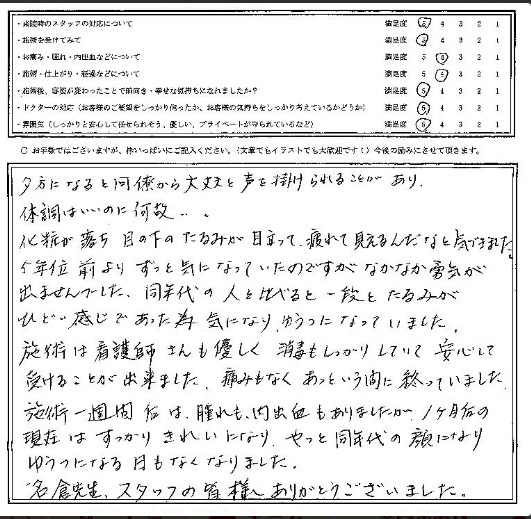 ・来院時のスタッフの対応について 満足度 5 4 3 2 1
・施術を受けてみて 満足度 5 4 3 2 1
・お痛み・腫れ・内出血などについて 満足度 5 4 3 2 1
・施術・仕上がり・経過などについて 満足度 5 4 3 2 1
・施術後、容姿が変わったことで前向き・幸せな気持ちになれましたか? 満足度 5 4 3 2 1
・ドクターの対応(お客様のご要望をしっかり伺ったか、お客様の気持ちをしっかり考えているかどうか) 満足度 5 4 3 2 1
・雰囲気(しっかりと安心して任せられそう、優しい、プライベートが守られているなど) 満足度 5 4 3 2 1
○ お手数ではございますが、枠いっぱいにご記入ください。(文章でもイラストでも大歓迎です!)今後の励みにさせて頂きます。
夕方になると同僚から大丈夫と声を掛けられることがあり、
体調はいいのに何故・・。
化粧が落ち目の下のたるみが目立って、疲れて見えるんだなと気づきました。
5年位前よりずっと気になっていたのですがなかなか勇気が
出ませんでした。同年代の人と比べると一段とたるみが
ひどい感じであった為気になり、ゆううつになっていました。
施術は看護師さんも優しく消毒もしっかりしていて安心して
受けることが出来ました。痛みもなくあっという間に終っていました。
施術一週間后は、腫れも、内出血もありましたが、1ヶ月后の
現在はすっかりきれいになり、やっと同年代の顔になり
ゆううつになる日もなくなりました。
名倉先生、スタッフの皆様へありがとうございました。